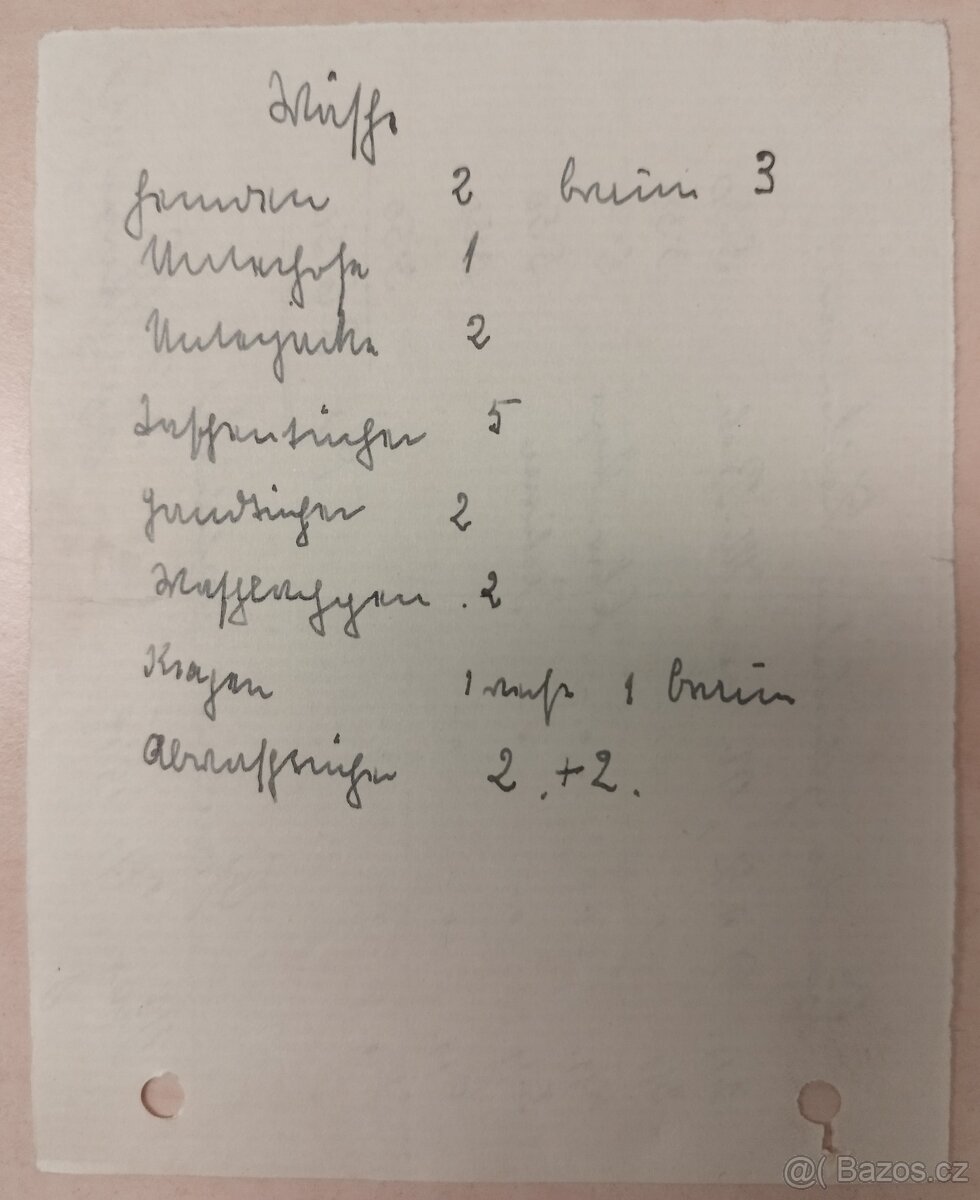 Wäsche
Hemden 2 braun 3
Unterhose 1
Unterjacke 2
Taschentücher 5
Handtücher 2
Waschlappen . 2
Kragen 1 weiß 1 braun
Abwaschtücher 2 . + 2 .
@( Bazos.cz